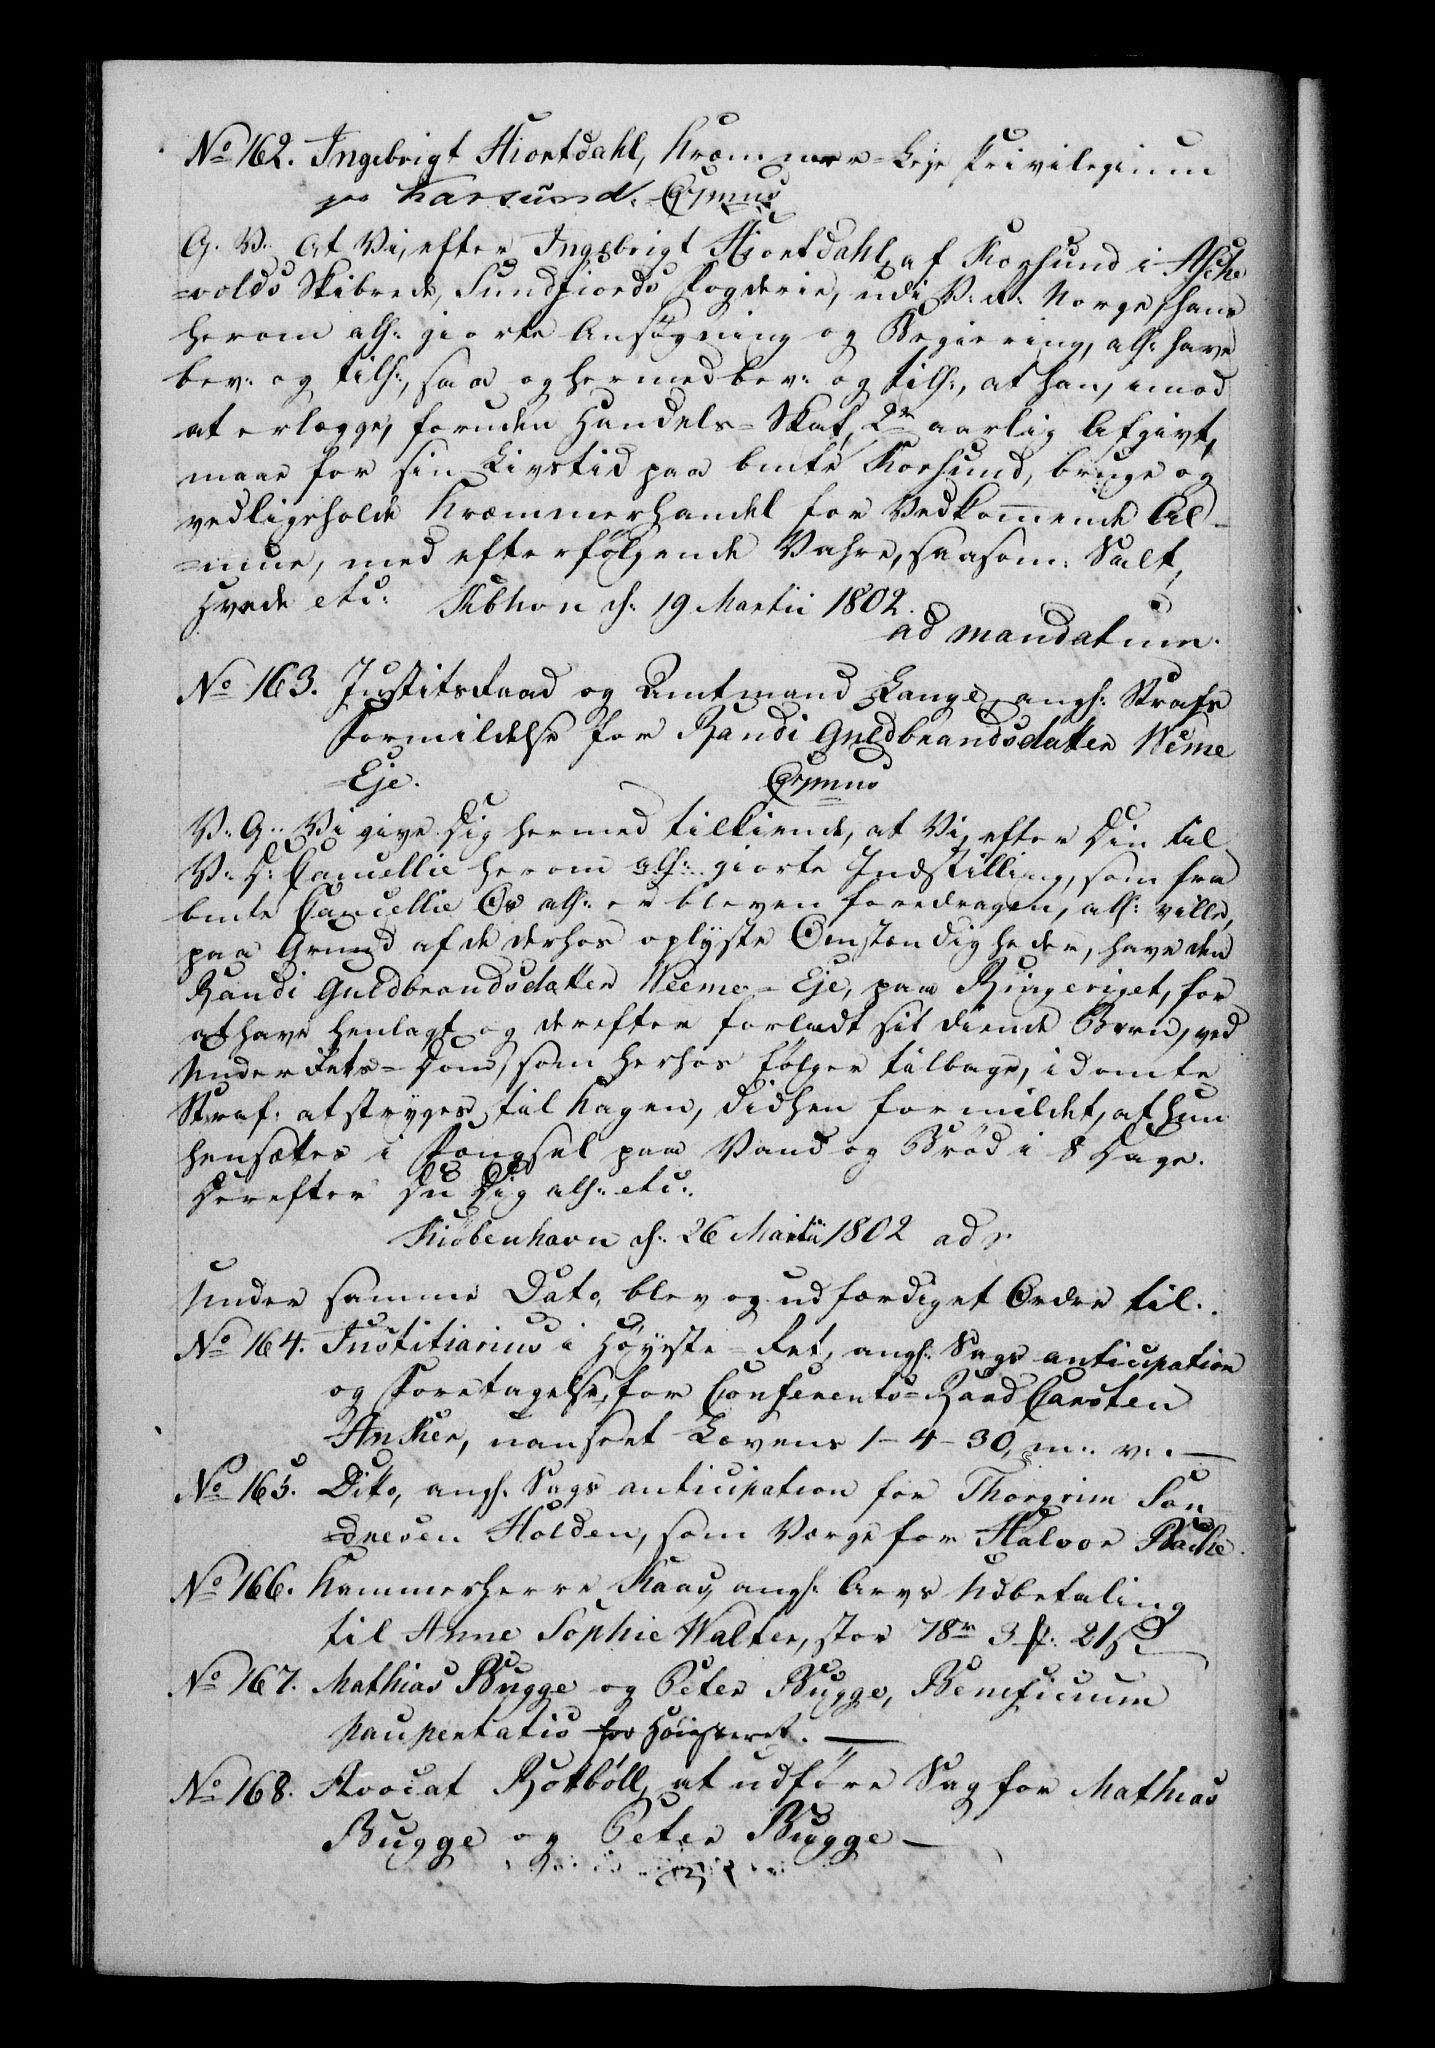 No 162. Ingebrigt Hiortdahl, Kræmmer-Leje Privilegium
paa Karsund. C. 7mus
G. V. At Vi, efter Ingebrigt Hiortdahl, af Korsund i Asche
=volds Skibrede, Sundfiords Fogderie, udi V: R: Norge, hans
herom allh: giorte Ansøgning og Begiering, allh: have
bev: og tilh:, saa og hermed bev: og tilh:, at han, imod
at erlægge, foruden Handels-Skat, 2 rd aarlig Afgivt,
maae for sin Livstid paa bmte Korsund, bruge og
vedligeholde Kræmmerhandel for Vedkommende Al-
=mue, med efterfølgende Vahre, saasom: Salt,
Hvede etc: Kbhvn d: 19 Martii 1802.
ad mandatum.
No 163. Justitsraad og Amtmand Lange, angh: Strafs
Formildelse for Randi Guldbrandsdatter Neme
Eje.
V: G: Vi give Dig hermed tilkiende, at Vi, efter Din til
V: D: Cancellie herom allh: giorte Indstilling, som fra
bmte Cancellie Os allh: er bleven foredragen, allh: ville,
paa Grund af de derhos oplyste Omstændigheder, have den
Randi Guldbrandsdatter Neeme-Eje, paa Ringeriget, for
at have henlagt og derefter forladt sit diende Barn, ved
Under Rets-Dom, som herhos følger tilbage, idømte
Straf: at stryges til Kagen, didhen formildet, at hun
hensættes i Fængsel paa Vand og Brød i 8 Dage.
Derefter Du Dig allh: etc:.
Kiøbenhavn d: 26 Martii 1802 ad
Under samme Dato blev og udfærdiget Ordre til.
No 164. Justitiarius i Høyeste-Ret, angh: Sags anticipation
og Foretagelse, for Conferents-Raad Carsten
Anker, uanseet Lovens 1-4-30, m: v:. —
No 165. Dito, angh: Sags anticipation for Thorgrim San
=dresen Holden, som Værge for Halvor Bache.
No 166. Kammerherre Kaas, angh: Arvs Udbetaling
til Anne Sophie Walter, stor 78 rd 3 ℔: 21 ß
No 167. Mathias Bugge og Peter Bugge, Beneficium
paupertatis for Høiesteret. —
No 168. Avocat Rotbøll, at udføre Sag for Mathias
Bugge og Peter Bugge —